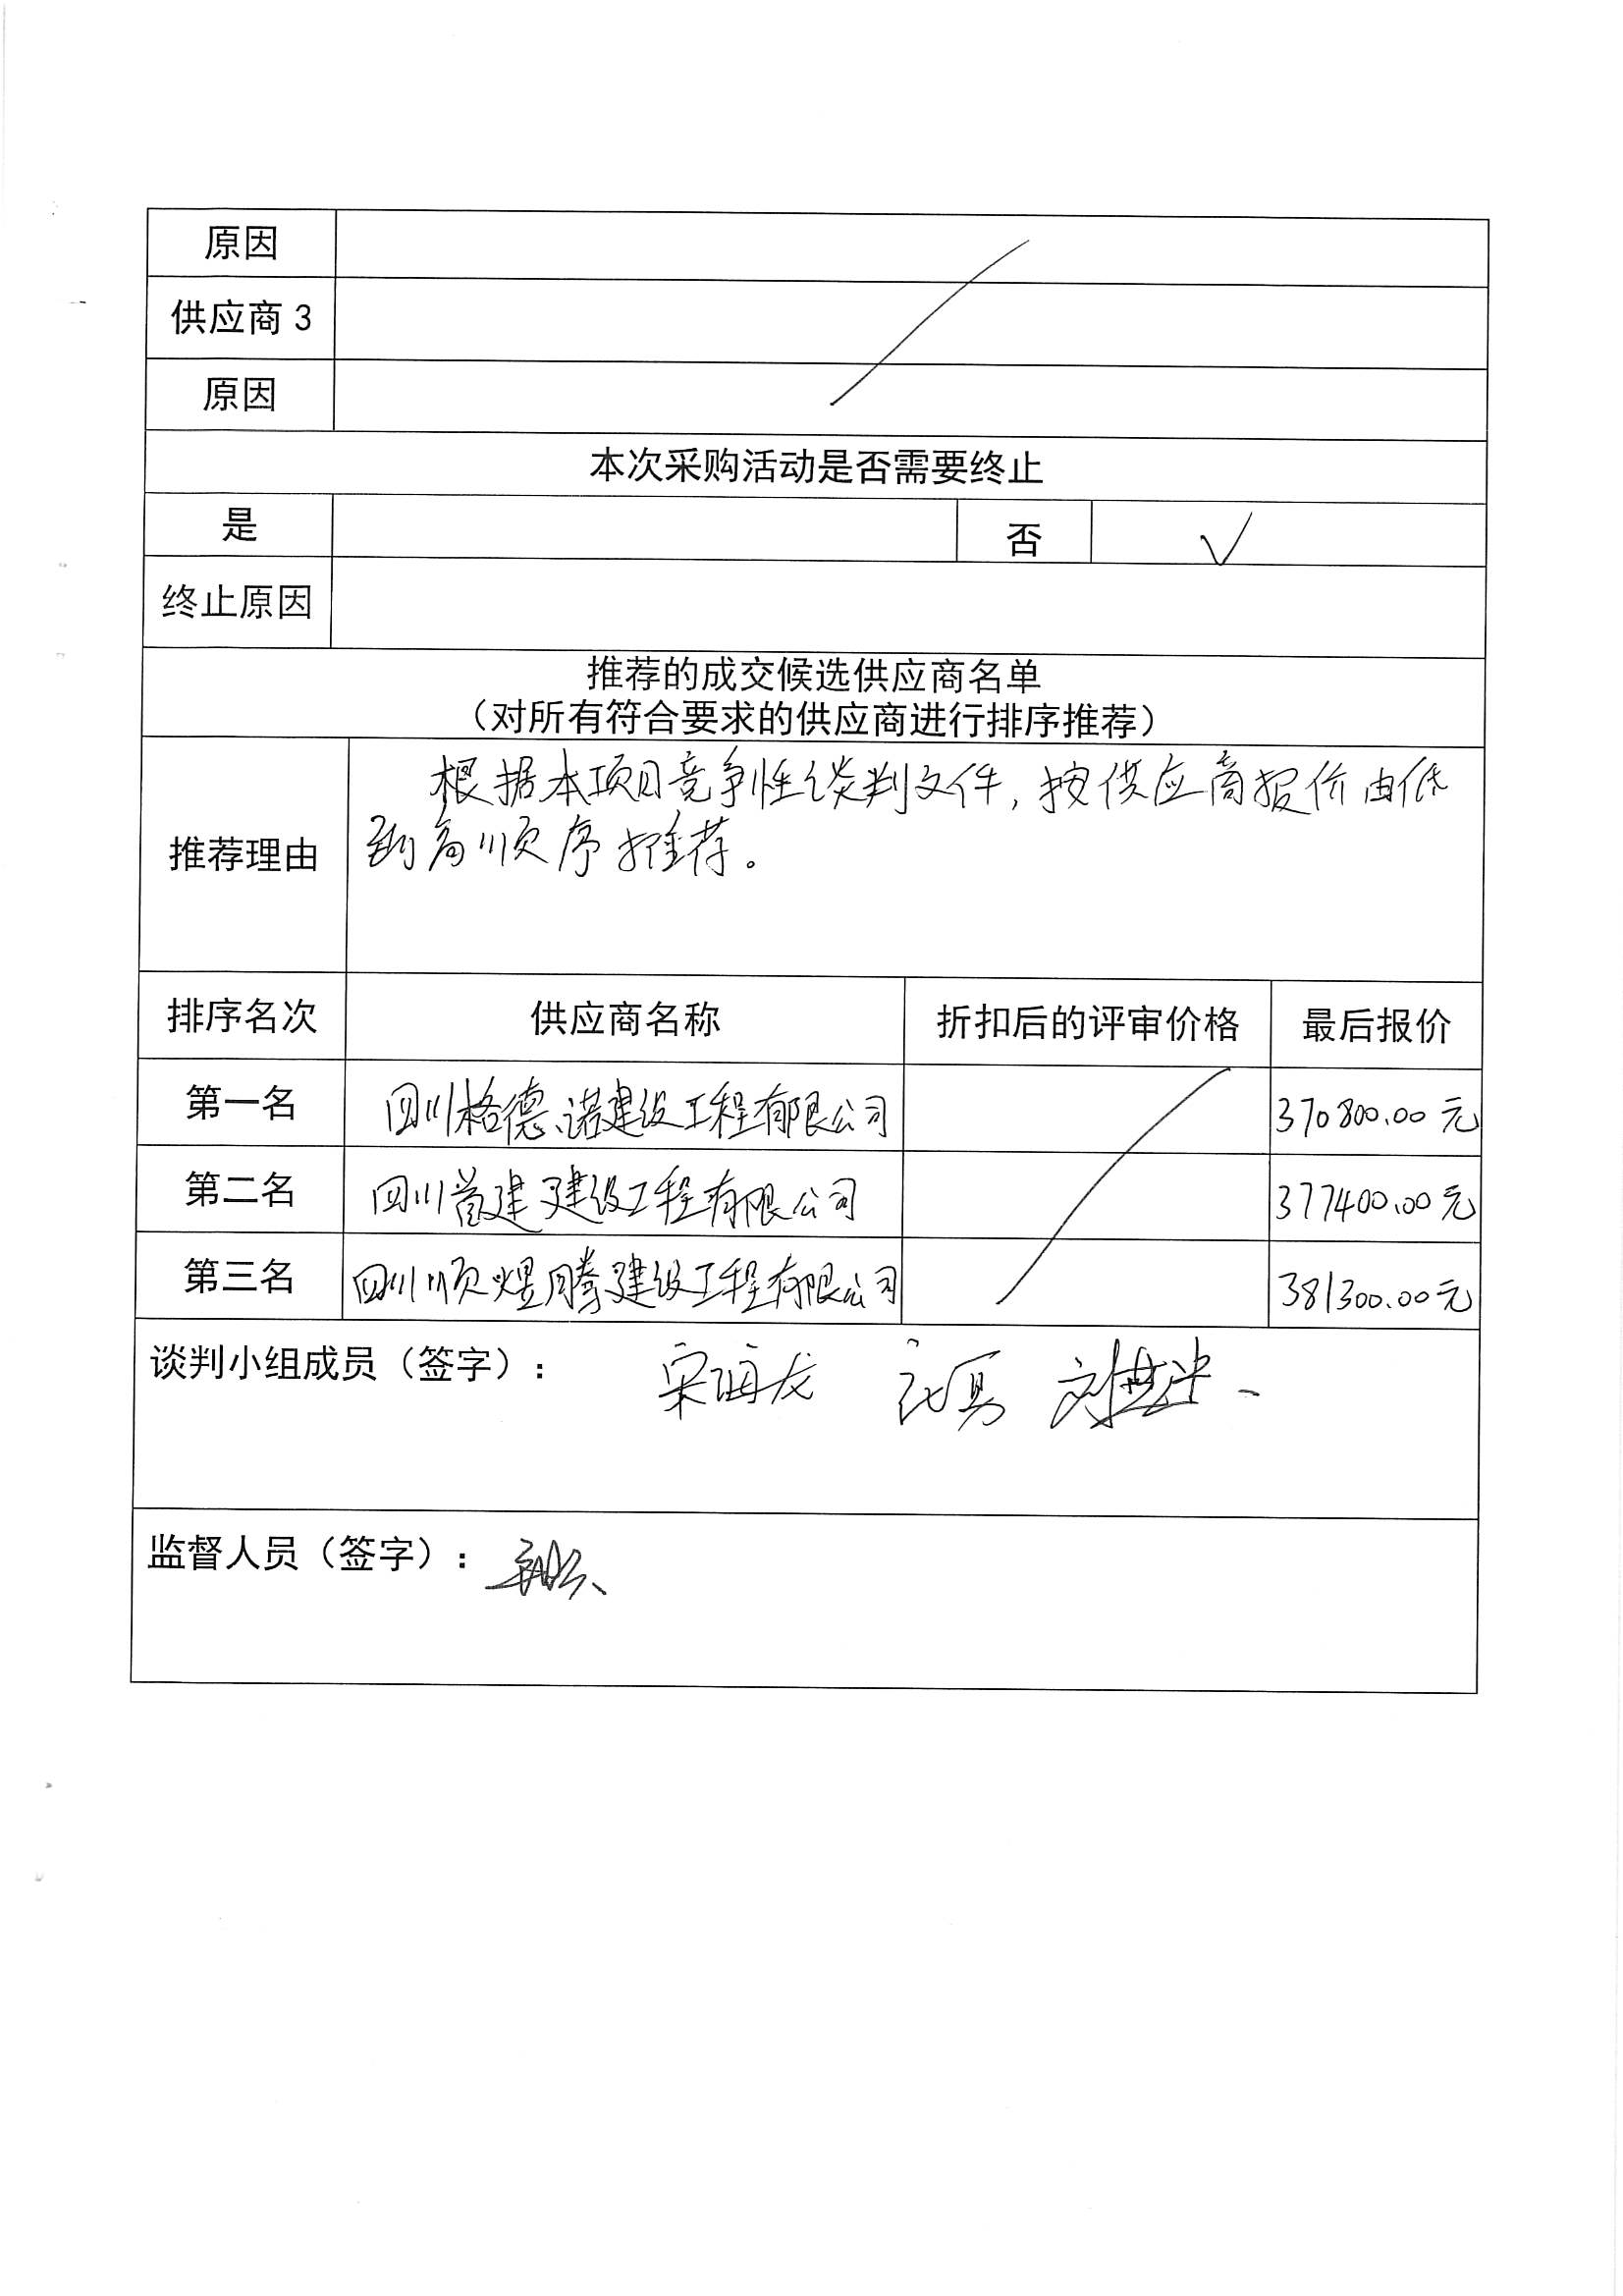 原因
供应商 3
原因
本次采购活动是否需要终止
是 否 √
终止原因
推荐的成交候选供应商名单
（对所有符合要求的供应商进行排序推荐）
推荐理由
根据本项目竞争性谈判文件，按供应商报价由低
到高顺序推荐。
排序名次 供应商名称 折扣后的评审价格 最后报价
第一名 四川格德诺建设工程有限公司 370800.00元
第二名 四川首建建设工程有限公司 377400.00元
第三名 四川顺煜腾建设工程有限公司 381300.00元
谈判小组成员（签字）：
监督人员（签字）：